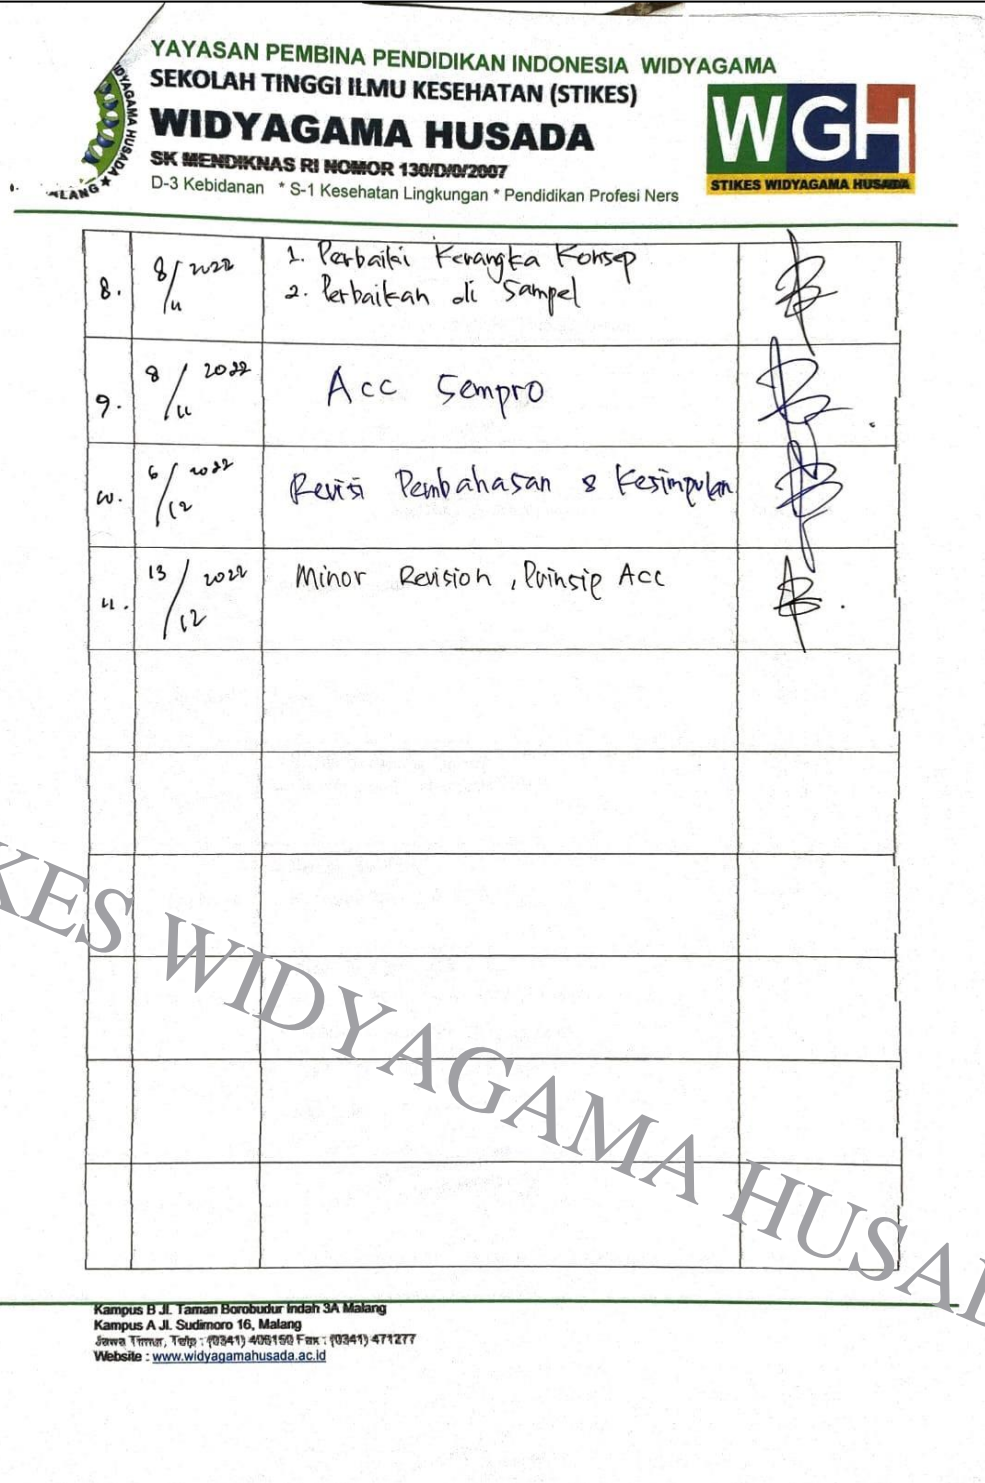 YAYASAN PEMBINA PENDIDIKAN INDONESIA WIDYAGAMA
SEKOLAH TINGGI ILMU KESEHATAN (STIKES)
WIDYAGAMA HUSADA
SK MENDIKNAS RI NOMOR 130/D/0/2007
D-3 Kebidanan * S-1 Kesehatan Lingkungan * Pendidikan Profesi Ners
WGH
STIKES WIDYAGAMA HUSADA
WIDYAGAMA HUSADA
MALANG
8. 8/11 2022 1. Perbaiki Kerangka Konsep
2. Perbaikan di Sampel
9. 8/11 2022 Acc Sempro
10. 6/12 2022 Revisi Pembahasan & Kesimpulan
11. 13/12 2022 Minor Revision, Prinsip Acc
KES WIDYAGAMA HUSAD
Kampus B Jl. Taman Borobudur Indah 3A Malang
Kampus A Jl. Sudimoro 16, Malang
Jawa Timur, Telp : (0341) 406150 Fax : (0341) 471277
Website : www.widyagamahusada.ac.id